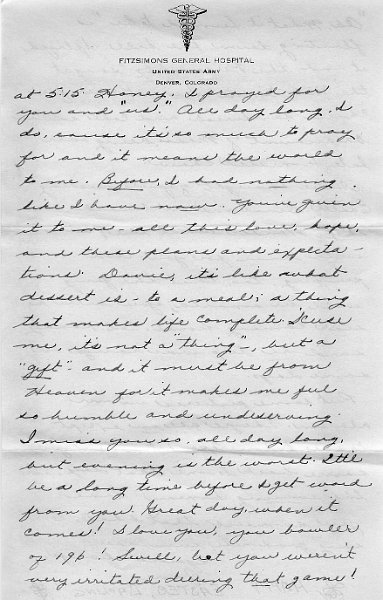 FITZSIMONS GENERAL HOSPITAL
UNITED STATES ARMY
DENVER, COLORADO
at 5:15 Honey, I prayed for
you and "us." All day long, I
do, cause it's so much to pray
for and it means the world
to me. Before, I had nothing
like I have now. You've given
it to me - all this love, hope,
and these plans and expecta-
tions. Davie, it's like what
dessert is - to a meal; a thing
that makes life complete. 'Cuse
me, it's not a "thing" -, but a
"gift" - and it must be from
Heaven for it makes me feel
so humble and undeserving.
I miss you so, all day long,
but evening is the worst. It'll
be a long time before I get word
from you. Great day when it
comes! I love you, you bowler
of 196! Swell, bet you weren't
very irritated during that game!